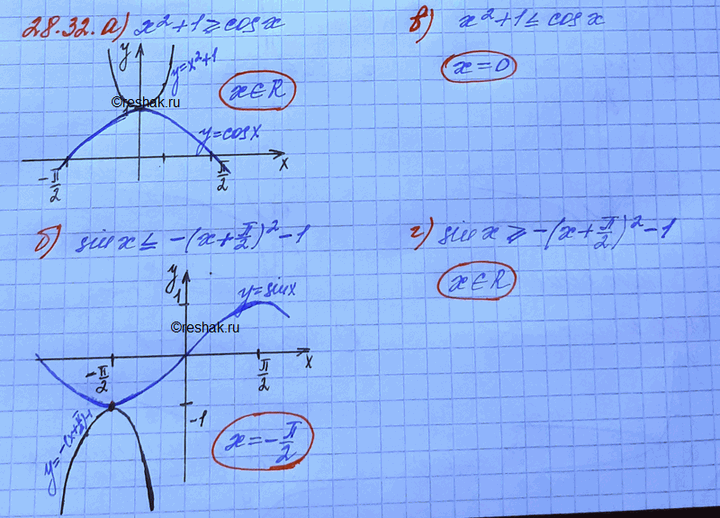 28.32. а) x²+1 ≥ cos x
y
y=x²+1
©reshak.ru
x∈R
y=cos x
-π/2
π/2
x
в) x²+1 ≤ cos x
x=0
б) sin x ≤ -(x+π/2)²-1
y
1
y=sin x
©reshak.ru
-π/2
π/2
x
-1
y=-(x+π/2)²-1
x=-π/2
г) sin x ≥ -(x+π/2)²-1
x∈R